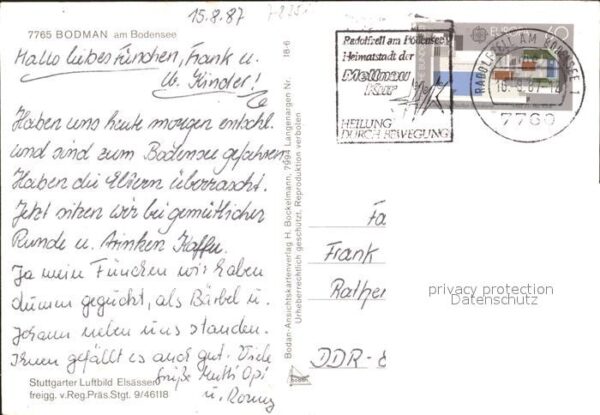 15.8.87
7765 BODMAN am Bodensee
Hallo liebes Fünchen, Frank u.
lb. Kinder!
Haben uns heute morgen entschl.
und sind zum Bodensee gefahren.
Haben die Eltern überrascht.
Jetzt sitzen wir bei gemütlicher
Runde u. trinken Kaffee.
Ja mein Fünchen wir haben
dumm geguckt, als Bärbel u.
Johann neben uns standen.
Ihnen gefällt es auch gut. Viele
Grüße Mutti Opi
u. Ronny
Stuttgarter Luftbild Elsässer
freigg. v. Reg. Präs. Stgt. 9/46118
18-6
Bodan-Ansichtskartenverlag H. Bockelmann, 7994 Langenargen Nr.
Urheberrechtlich geschützt. Reproduktion verboten
Radolfzell am Bodensee
Heimatstadt der
Mettnau
Kur
HEILUNG
DURCH BEWEGUNG
EUROPA
60
RADOLFZELL AM BODENSEE 1
7760
Fa
Frank
Rather
DDR-8
privacy protection
Datenschutz